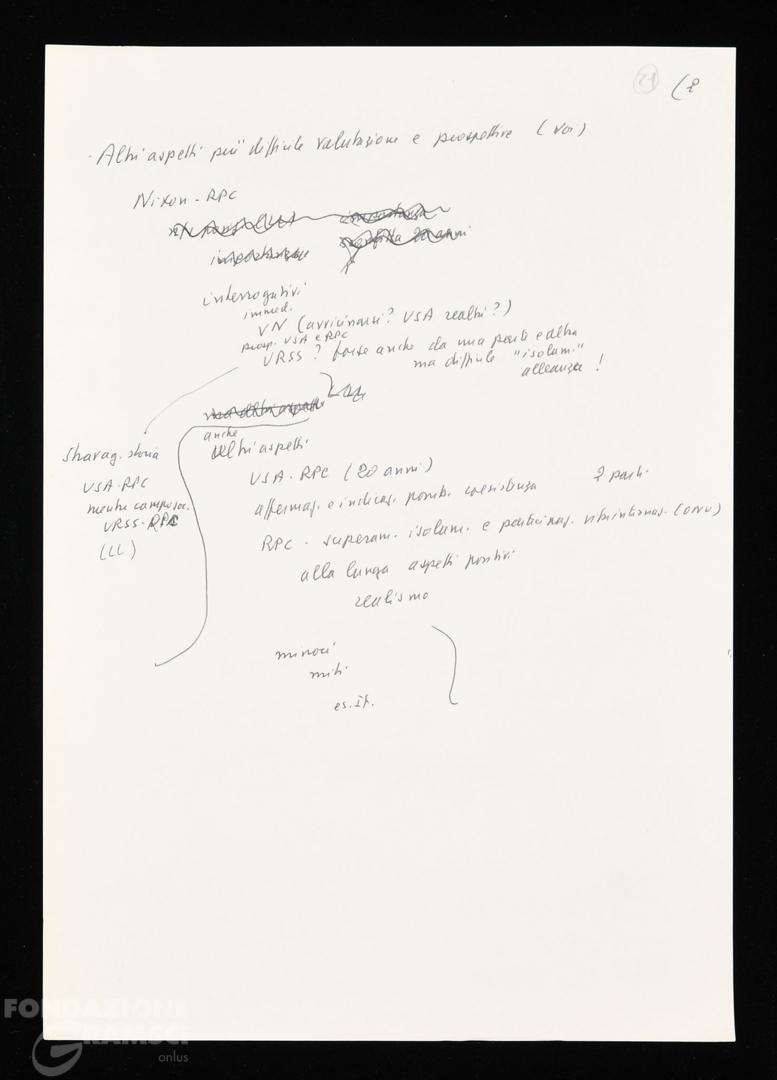 21 (2
- Altri aspetti più difficile valutazione e prospettive (voi)
Nixon - RPC
importanza
interrogativi
immed.
VN (avvicinarsi? USA realtà?)
prosp. USA e RPC
URSS? forse anche da una parte e altra
ma difficile "isolam."
alleanza!
anche
altri aspetti
USA-RPC (20 anni)
affermaz. e indicaz. possib. coesistenza 2 parti
RPC - superam. isolam. e partecipaz. internaz. (ONU)
alla lunga aspetti positivi
realismo
stravag. storia
USA-RPC
mentre
URSS-RPC
(LL)
minori
miti
es. It.
FONDAZIONE
GRAMSCI
onlus